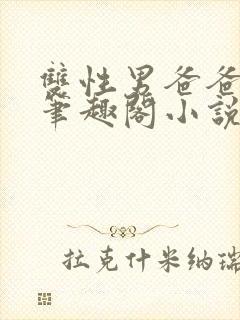 雙性男爸爸
筆趣閣小說
拉克什米納瑞